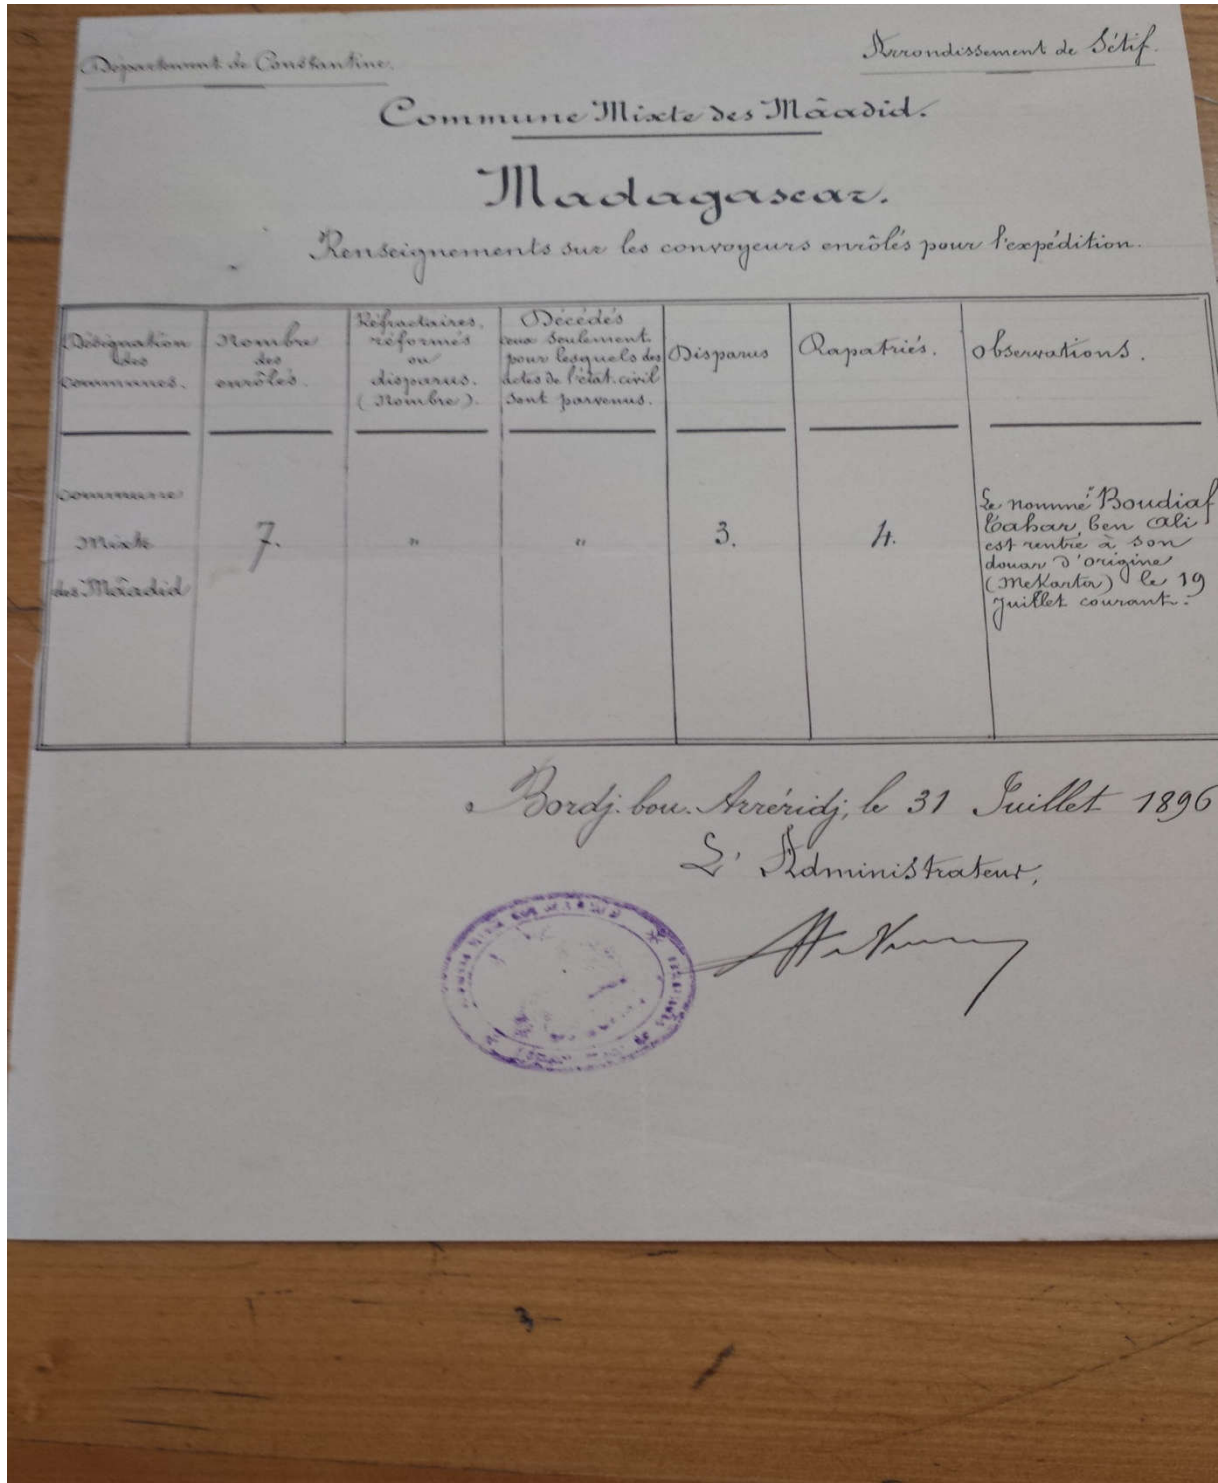 Département de Constantine.
Arrondissement de Sétif.
Commune Mixte des Mâadid.
Madagascar.
Renseignements sur les convoyeurs enrôlés pour l'expédition.
Désignation
des
communes.
Nombre
des
enrôlés.
Réfractaires,
réformés
ou
disparus.
(Nombre).
Décédés
ceux seulement
pour lesquels des
actes de l'état-civil
sont parvenus.
Disparus
Rapatriés.
Observations.
Commune
Mixte
des Mâadid
7.
"
"
3.
4.
Le nommé Boudiaf
Tahar ben Ali
est rentré à son
douar d'origine
(Mekarta) le 19
Juillet courant.
Bordj-bou-Arréridj, le 31 Juillet 1896
L'Administrateur,